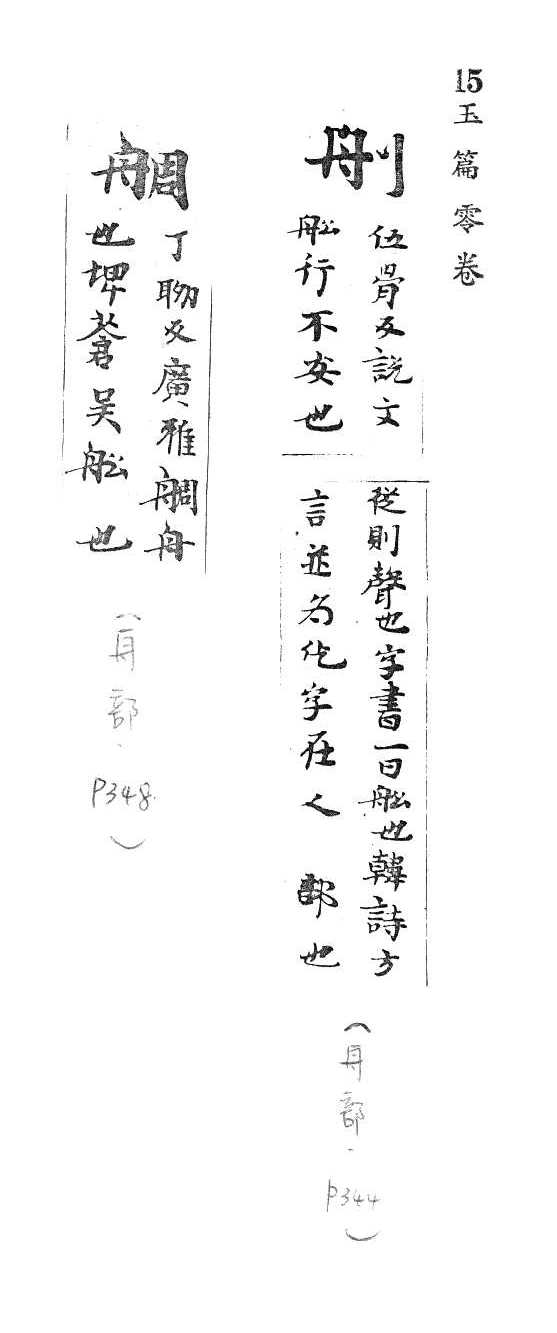 15玉篇零卷
舠
伍骨反說文
舩行不安也
從則聲也字書一曰舩也韓詩方
言並為仡字在人部也
(舟部.P344)
舟周
丁聊反廣雅舟周舟
也埤蒼吴舩也
(舟部.P348)